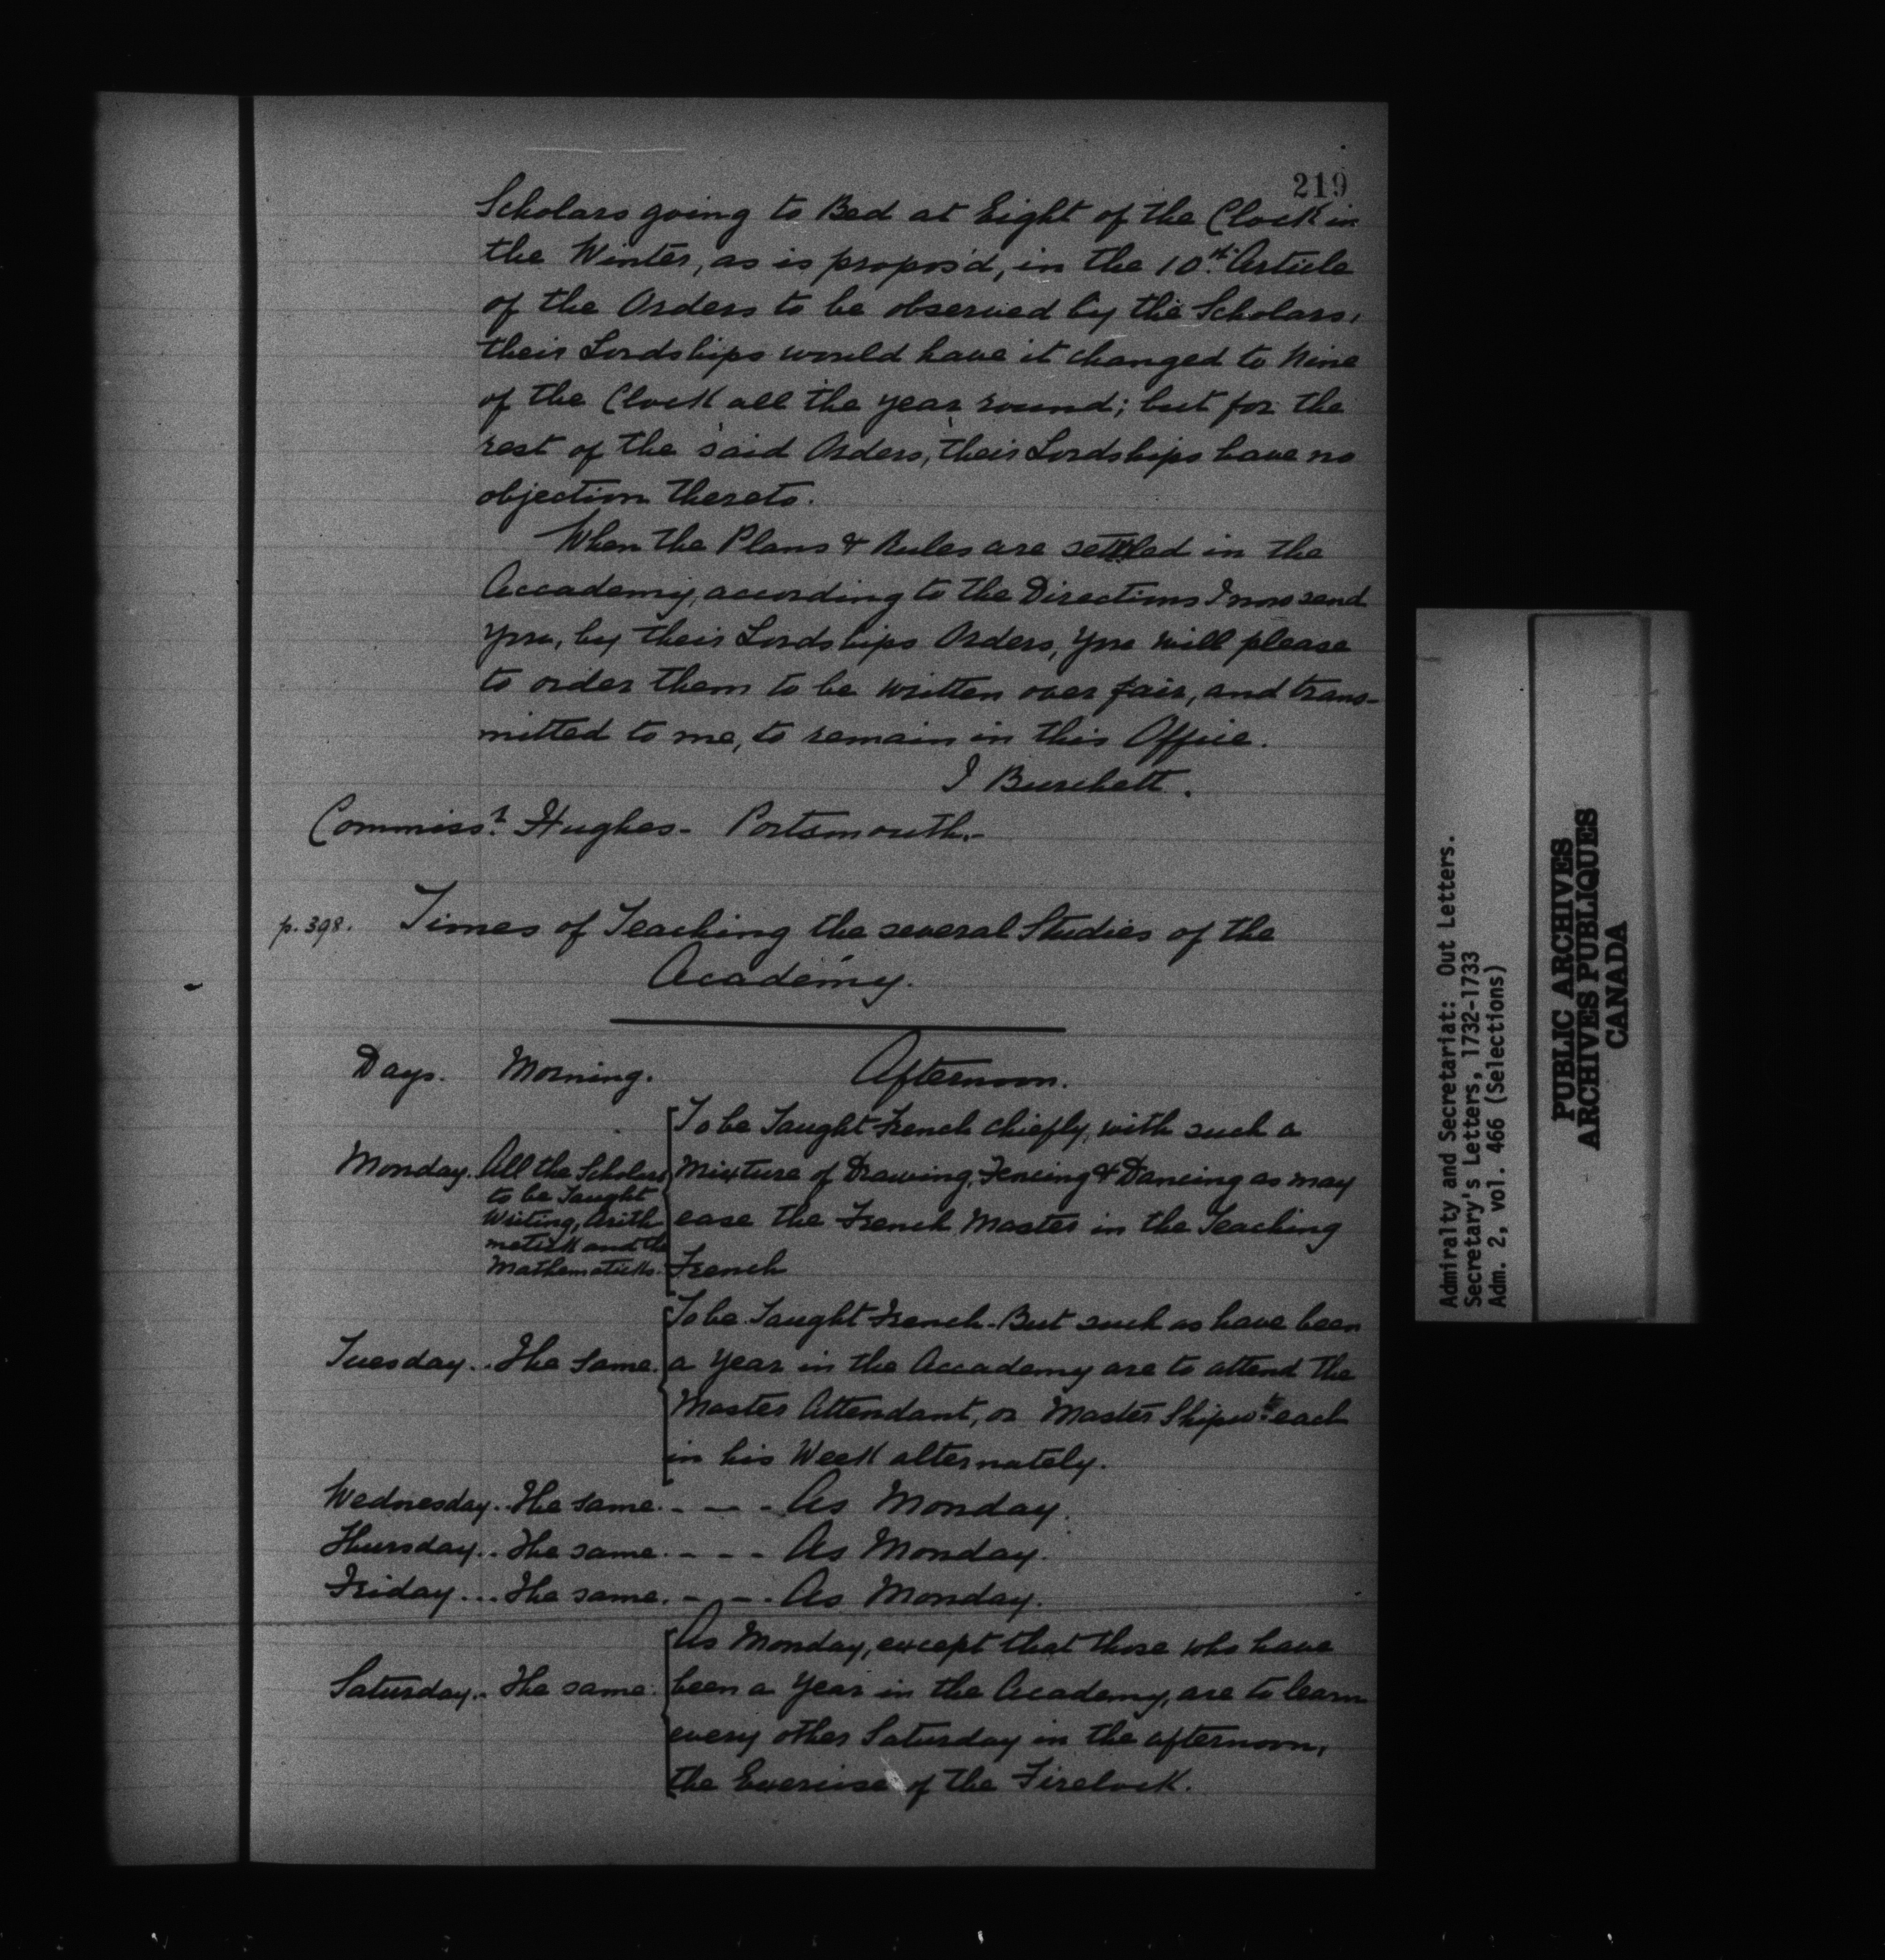 219
Scholars going to Bed at Eight of the Clock in
the Winter, as is propos'd, in the 10th Article
of the Orders to be observed by the Scholars,
their Lordships would have it changed to Nine
of the Clock all the year round; but for the
rest of the said Orders, their Lordships have no
objection thereto.
When the Plans & Rules are settled in the
Accademy, according to the Directions I now send
you, by their Lordships Orders, you will please
to order them to be written over fair, and trans-
mitted to me, to remain in this Office.
J Burchett.
Commissr Hughes - Portsmouth.-
p. 398. Times of Teaching the several Studies of the
Academy.
Days. Morning. Afternoon.
Monday. All the Scholars to be Taught Writing, Arith metick and the Mathematicks.
To be Taught French chiefly, with such a
Mixture of Drawing, Fencing & Dancing as may
ease the French Master in the Teaching
French
Tuesday.. The same.
To be Taught French - But such as have been
a Year in the Accademy are to attend the
Master Attendant, or Master Shipwt each
in his Week alternately.
Wednesday.. The same. - - - As Monday.
Thursday.. The same. - - - As Monday.
Friday... The same. - - - As Monday.
Saturday.. The same.
As Monday, except that those who have
been a Year in the Academy, are to learn
every other Saturday in the afternoon,
the Exercise of the Firelock.
Admiralty and Secretariat: Out Letters.
Secretary's Letters, 1732-1733
Adm. 2, vol. 466 (Selections)
PUBLIC ARCHIVES
ARCHIVES PUBLIQUES
CANADA